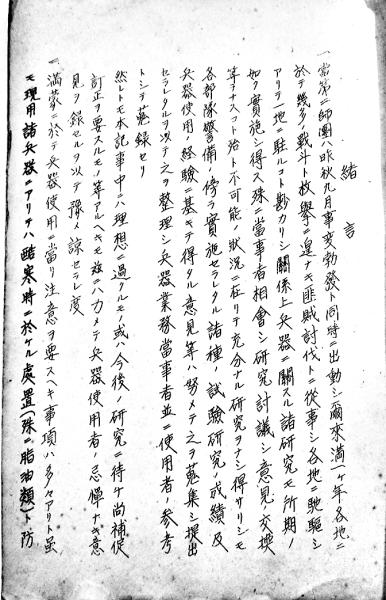 緒言
一、當第二師團ハ昨秋九月事変勃發ト同時ニ出動シ爾來滿一ケ年各地ニ
於テ幾多ノ戰斗枚擧ニ遑ナキ匪賊討伐ニ從事シ各地ニ馳驅シ
アリテ一地ニ駐ルコト尠カリシ關係上兵器ニ關スル諸研究モ所期ノ
如ク實施シ得ス殊ニ當事者相會シ研究討議シ意見交換
等ヲナスコト殆ト不可能ノ状況ニ在リテ充分ナル研究ヲナシ得サリシモ
各部隊警備ノ傍ラ實施セラレタル諸種ノ試驗研究ノ成績及
兵器使用ノ経驗ニ基キテ得タル意見等ハ努メテ之ヲ蒐集シ提出
セラレタルヲ以テ之ヲ整理シ兵器業務當事者並ニ使用者ノ參考
トシテ蒐録セリ
然レトモ本記事中ニハ理想ニ過クルモノ或ハ今後ノ研究ニ待チ尚補促
訂正ヲ要スルモノ等アルヘキモ茲ニハ力メテ兵器使用者ノ忌憚ナキ意
見ヲ録セルヲ以テ豫メ諒セラレ度
一、滿蒙ニ於テ兵器使用ニ當リ注意ヲ要スヘキ事項ハ多々アリト虽
モ現用諸兵器ニアリテハ酷寒時ニ於ケル處置(殊ニ脂油類)ト防